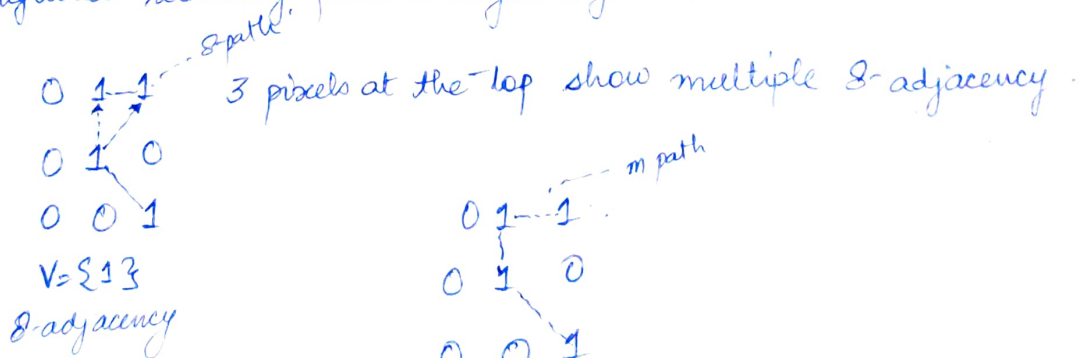 8-path.
0 1 1
3 pixels at the top show multiple 8-adjacency.
0 1 0
0 0 1
V={1}
8-adjacency
m path
0 1 1
0 1 0
0 0 1